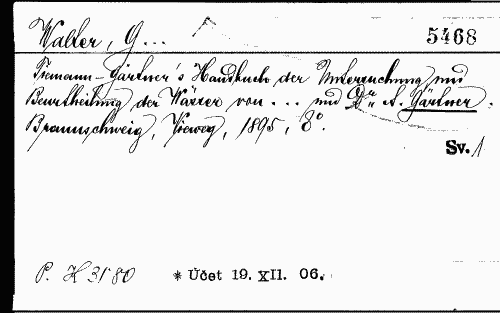 Walter, G...
5468
Tiemann-Gärtner's Handbuch der Untersuchung und
Beurtheilung der Wässer von ... und Dr. A. Gärtner.
Braunschweig, Vieweg, 1895, 8°.
Sv. 1
P. H 3180
* Účet 19. XII. 06.